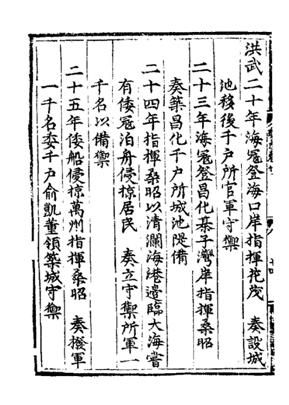 洪武二十年海寇登海口岸指揮花茂　奏設城
池移後千户所官軍守禦
二十三年海寇登昌化英子灣岸指揮桑昭
奏築昌化千户所城池隄備
二十四年指揮桑昭以清瀾海港邊臨大海嘗
有倭寇泊舟侵掠居民　奏立守禦所軍一
千名以備禦
二十五年倭船侵掠萬州指揮桑昭　奏撥軍
一千名委千户俞凱董領築城守禦